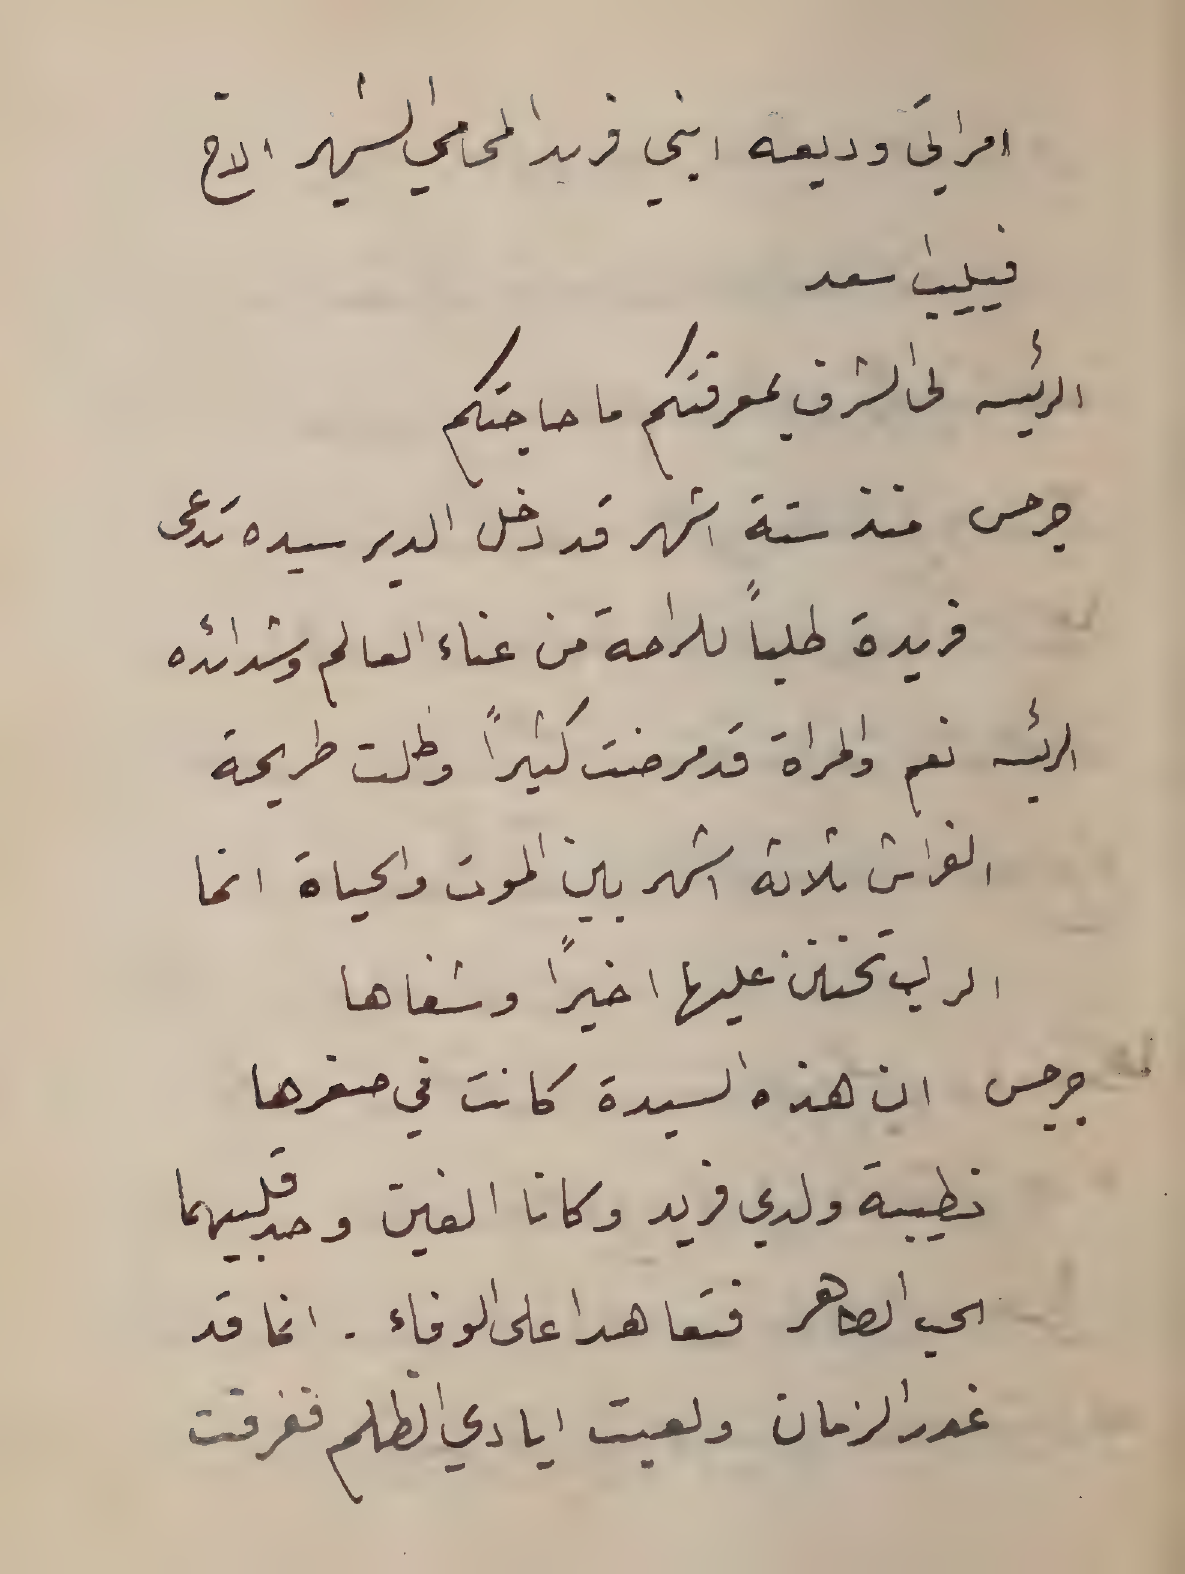 امراتي وديعه ابني فريد المحامي الشهير الاخ
فيليب اسعد
الرئيسه لي الشرف بمعرفتكم ما حاجتكم
جرجس منذ ستة اشهر قد دخل الدير سيده تدعى
فريدة طلباً للراحة من عناء العالم وشدائده
الرئيسه نعم والمراة قد مرضت كثيراً وظلت طريحة
الفراش ثلاثة اشهر بين الموت والحياة انما
الرب تحنن عليها اخيراً وشفاها
جرجس ان هذه السيدة كانت في صغرها
خطيبة ولدي فريد وكانا الفين وحد قلبيهما
الحب الطاهر فتعاهدا على الوفاء . انما قد
غدر الزمان ولعبت ايادي الظلم ففرقت